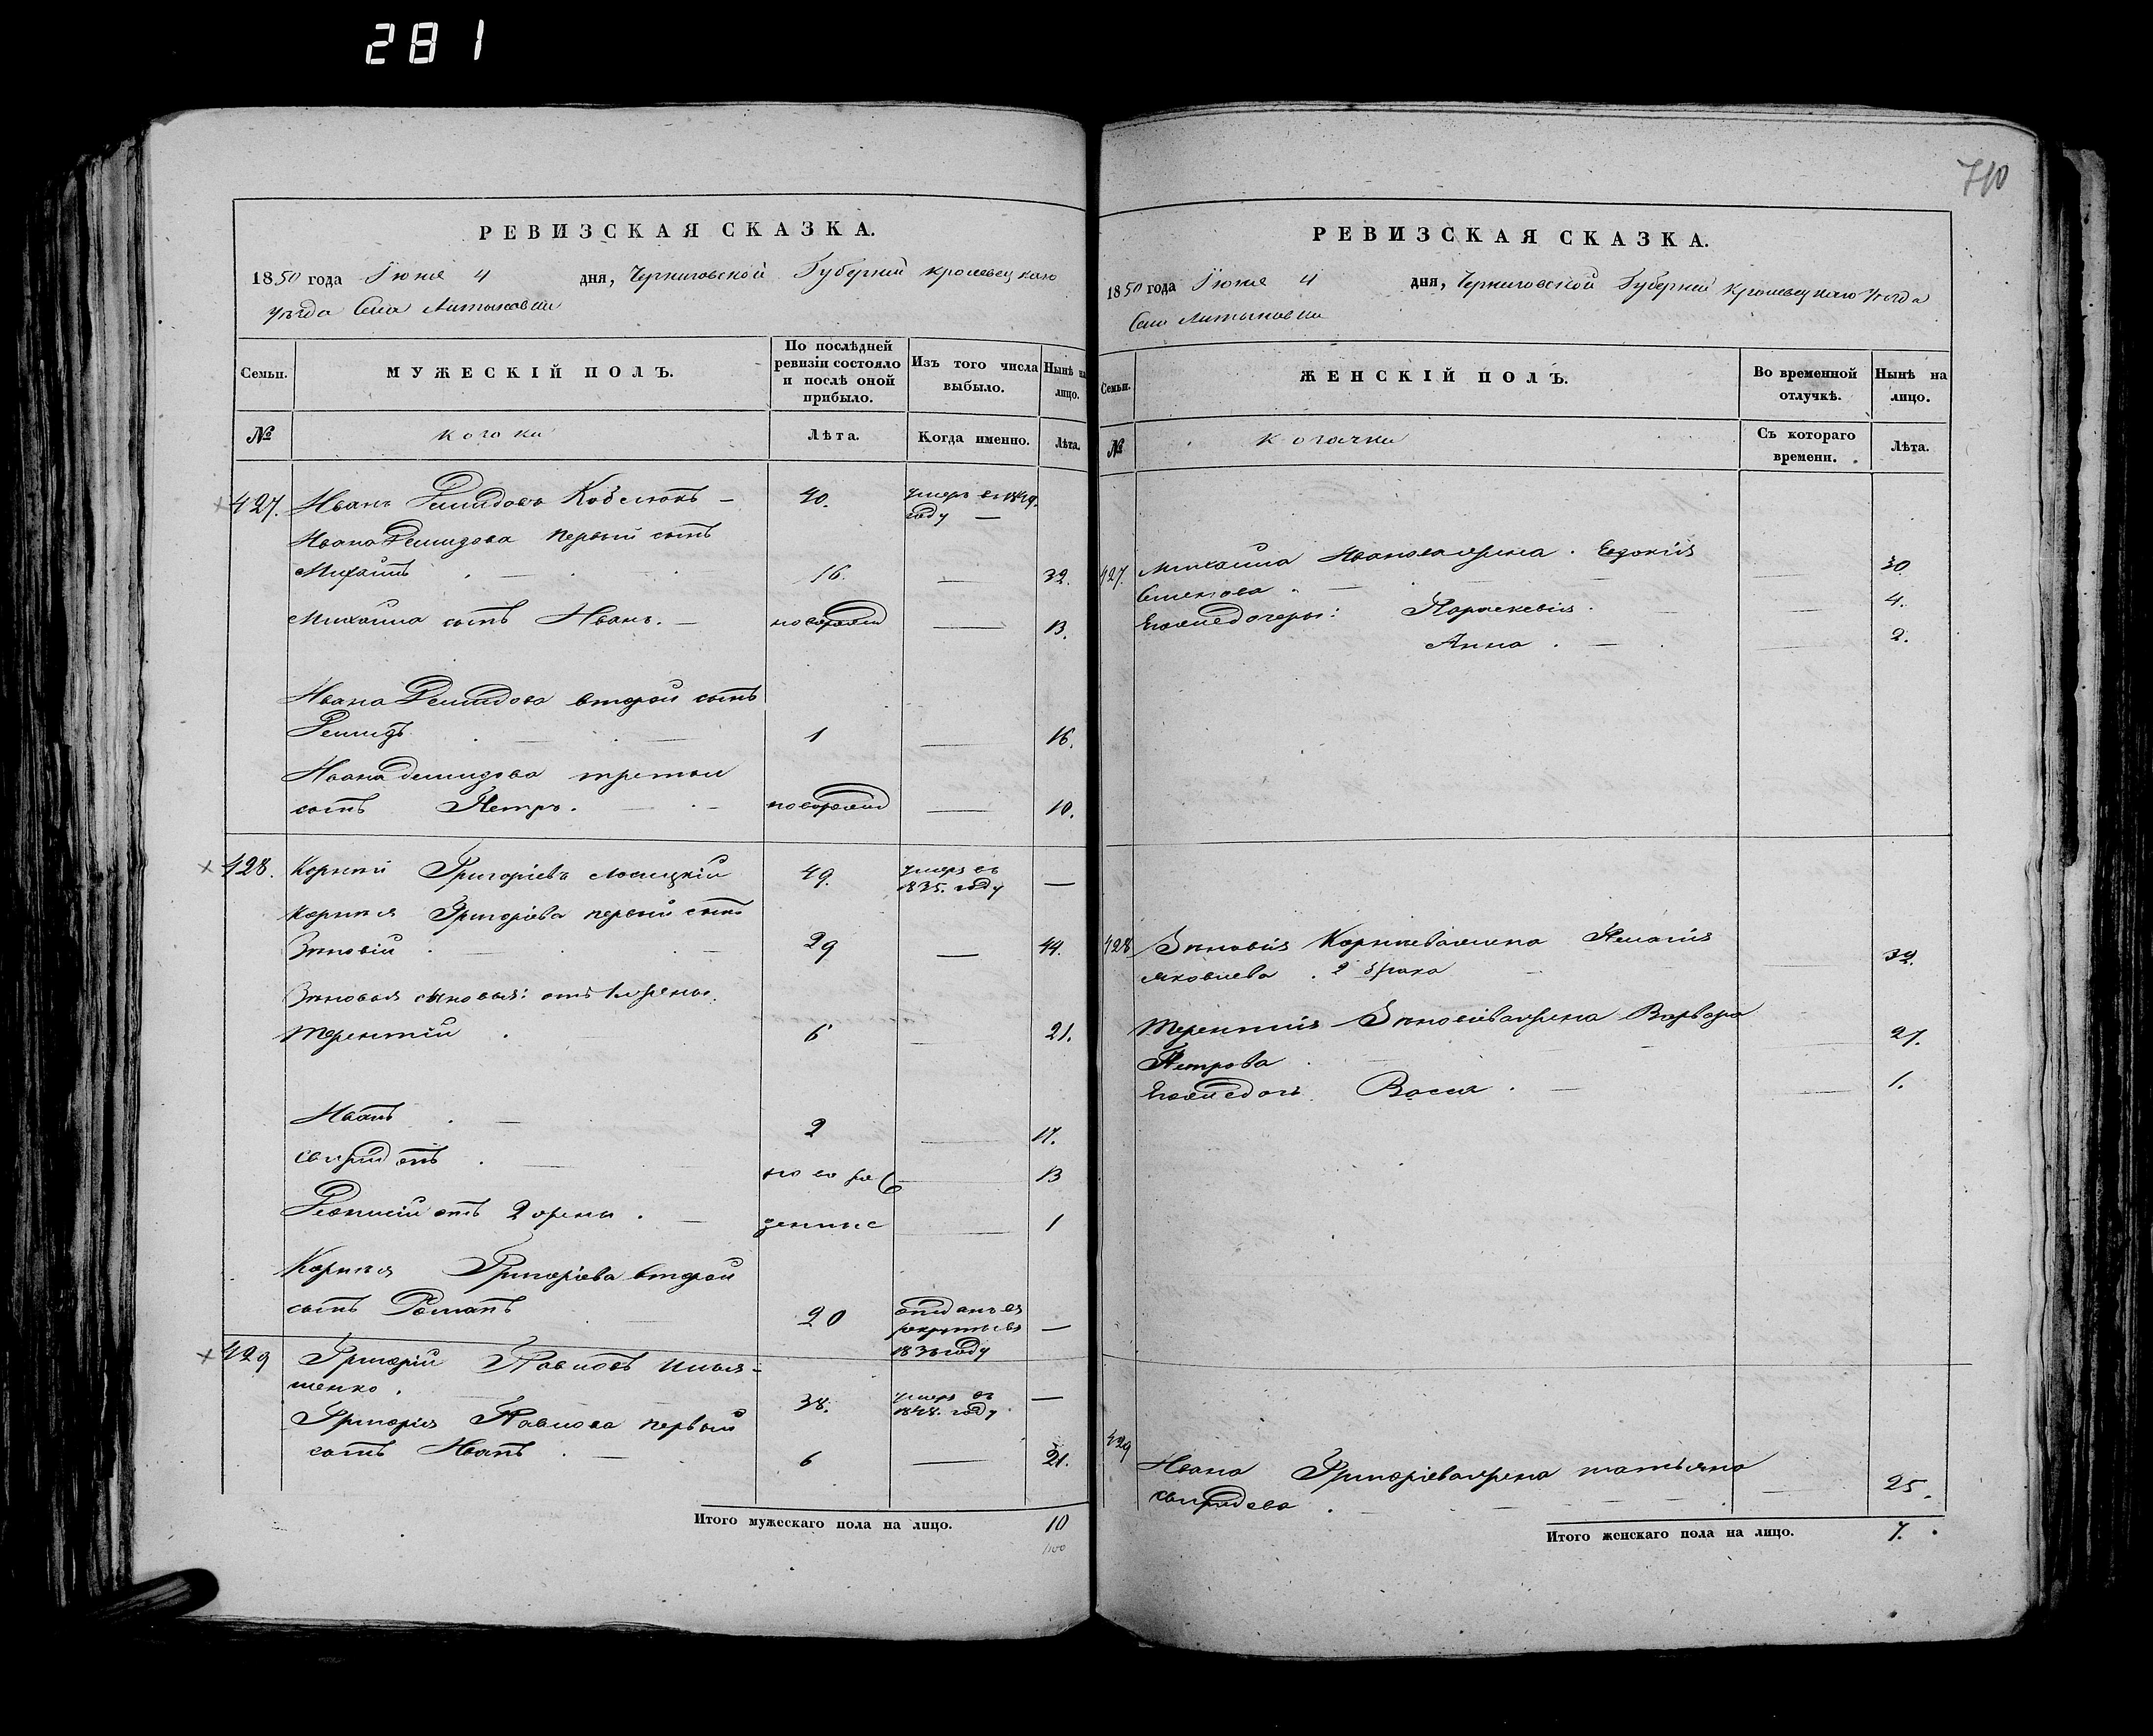 281
710
РЕВИЗСКАЯ СКАЗКА.
1850 года Іюня 4 дня, Черниговской Губерніи Кролевецкаго
уѣзда Села Литвиновки
Семьи.
МУЖЕСКІЙ ПОЛЪ.
По послѣдней ревизіи состояло и послѣ оной прибыло.
Изъ того числа выбыло.
Нынѣ на лицо.
№
Лѣта.
Когда именно.
Лѣта.
427. Иванъ Демидовъ 40. умеръ въ 1849.
году
Ивана Демидова первый сынъ
Михаилъ 16. 32.
Михаила сынъ Иванъ. новорожден 13.
Ивана Демидова второй сынъ
Демидъ 1 16.
Ивана Демидова третьи
сынъ Петръ. новорожден 10.
428. Корнѣй Григоріевъ 49. умеръ въ
1835. году
Корнѣя Григоріева первый сынъ
Зѣновій 29 44.
Зѣновія сыновья: отъ 1 жены.
Терентій 6 21.
Иванъ 2 17.
Свиридонъ новоро 13
отъ 2 жены. денные 1
Корнѣя Григоріева второй
сынъ Романъ 20 отданъ въ
рекруты въ
1836 году
429 Григорій Павловъ Илья-
шенко. 38. умеръ въ
1848. году
Григорія Павлова первый
сынъ Иванъ 6 21.
Итого мужескаго пола на лицо. 10
РЕВИЗСКАЯ СКАЗКА.
1850 года Іюня 4 дня, Черниговской Губерніи Кролевецкаго уѣзда
Села Литвиновки
Семьи.
ЖЕНСКІЙ ПОЛЪ.
Во временной отлучкѣ.
Нынѣ на лицо.
№
Съ котораго времени.
Лѣта.
427. Михаила Иванова жена. Евдокія
Семенова 30.
Егожъ дочери: Параскевія. 4.
Анна 2.
428 Зѣновія Корнѣева жена Пелагія
Яковлева. 2 брака 32.
Терентія Зѣновіева жена Варвара
Петрова 21.
Егожъ дочь Васса 1.
429 Ивана Григоріева жена татьяна
свиридова 25.
Итого женскаго пола на лицо. 7.